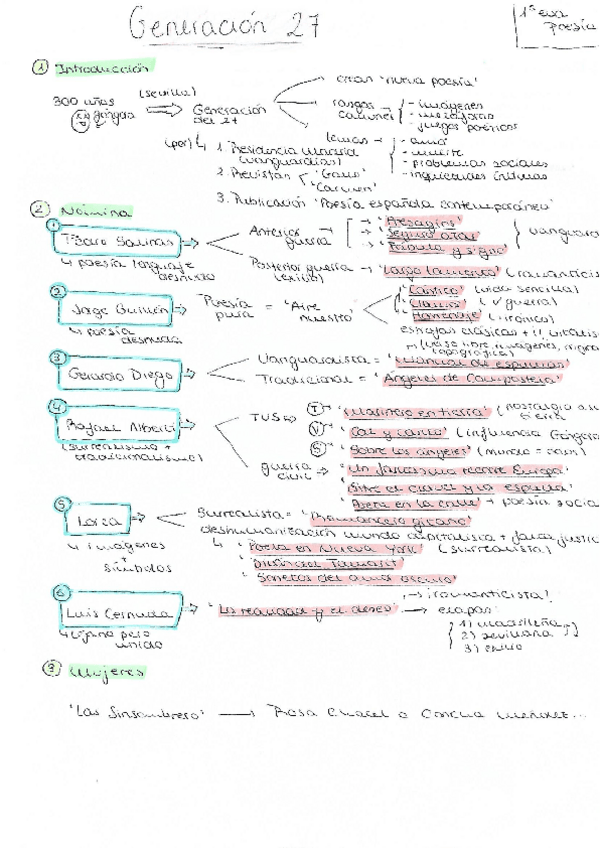 Generación 27
1ª eva
Poesía
① Introducción
300 años (sevilla) Generación
Góngora del 27
crean 'nueva poesía'
rasgos - imágenes
comunes - metáforas
- juegos poéticos
temas - amor
- muerte
- problemas sociales
- inquietudes íntimas
(por) 1. Residencia
(vanguardias)
2. Revistas 'Gallo'
'Carmen'
3. Publicación 'Poesía española contemporánea'
② Nómina
① Pedro Salinas
poesía lenguaje
desnudo
Anterior
guerra
'Presagios'
'Seguro azar'
'Fábula y signo'
Posterior guerra
(exilio)
'Largo lamento'
② Jorge Guillén
poesía
desnuda
Poesía
pura = 'Aire
nuestro'
'Cántico' (vida sencilla)
'Clamor' (guerra)
'Homenaje' (irónico)
③ Gerardo Diego
Vanguardista = 'Manual de espumas'
Tradicional = 'Ángeles de Compostela'
④ Rafael Alberti
(surrealismo +
tradicionalismo)
TVS
Ⓣ 'Marinero en tierra'
Ⓥ 'Cal y canto' (influencia
Ⓢ 'Sobre los ángeles' (mundo =
guerra
civil
'Un fantasma recorre Europa'
'Entre el clavel y la espada'
'Poeta en la calle' + poesía
⑤ Lorca
imágenes
+
símbolos
Surrealista = 'Romancero gitano'
deshumanización mundo capitalista + falta
'Poeta en Nueva York' (surrealista)
'Diván del Tamarit'
'Sonetos del amor oscuro'
⑥ Luis Cernuda
unido
'La realidad y el deseo'
¡romanticista!
etapas:
1) madrileña
2) sevillana
3) exilio
③ Mujeres
'Las Sinsombrero' → Rosa Chacel o Concha Méndez...